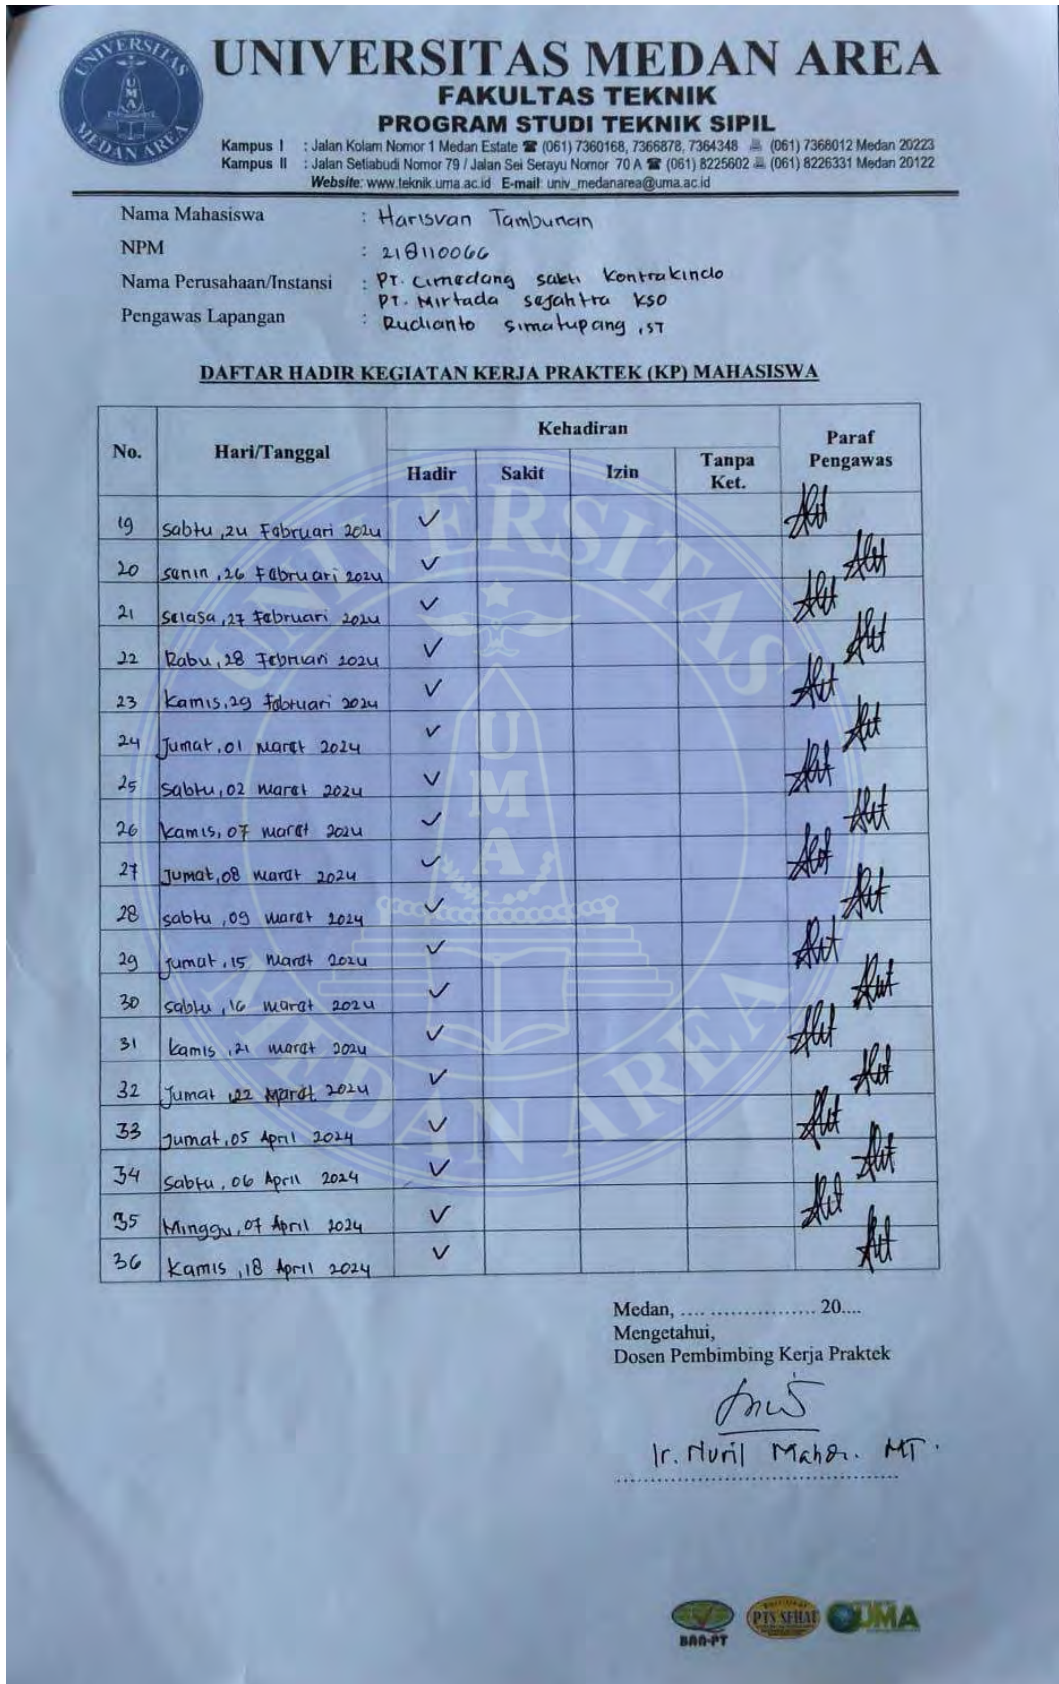 UNIVERSITAS MEDAN AREA
FAKULTAS TEKNIK
PROGRAM STUDI TEKNIK SIPIL
Kampus I : Jalan Kolam Nomor 1 Medan Estate ☎ (061) 7360168, 7366878, 7364348 (061) 7368012 Medan 20223
Kampus II : Jalan Setiabudi Nomor 79 / Jalan Sei Serayu Nomor 70 A ☎ (061) 8225602 (061) 8226331 Medan 20122
Website: www.teknik.uma.ac.id E-mail: univ_medanarea@uma.ac.id
UNIVERSITAS MEDAN AREA
UMA
Nama Mahasiswa : Harisvan Tambunan
NPM : 218110066
Nama Perusahaan/Instansi : PT. Cimedang sakti Kontrakindo
PT. Mirtada sejahtra KSO
Pengawas Lapangan : Rudianto Simatupang ,ST
DAFTAR HADIR KEGIATAN KERJA PRAKTEK (KP) MAHASISWA
No. Hari/Tanggal Kehadiran Paraf Pengawas
Hadir Sakit Izin Tanpa Ket.
19 Sabtu ,24 Februari 2024 ✓
20 Senin ,26 Februari 2024 ✓
21 Selasa ,27 Februari 2024 ✓
22 Rabu ,28 Februari 2024 ✓
23 Kamis ,29 Februari 2024 ✓
24 Jumat ,01 Maret 2024 ✓
25 Sabtu ,02 Maret 2024 ✓
26 Kamis, 07 maret 2024 ✓
27 Jumat,08 maret 2024 ✓
28 Sabtu ,09 maret 2024 ✓
29 Jumat ,15 Maret 2024 ✓
30 Sabtu ,16 maret 2024 ✓
31 Kamis ,21 maret 2024 ✓
32 Jumat ,22 Maret 2024 ✓
33 Jumat ,05 April 2024 ✓
34 Sabtu , 06 April 2024 ✓
35 Minggu, 07 April 2024 ✓
36 Kamis ,18 April 2024 ✓
UNIVERSITAS MEDAN AREA
UMA
Medan, .... .................. 20....
Mengetahui,
Dosen Pembimbing Kerja Praktek
Ir. Nuril MT.
BAN-PT PTS SEHAT UMA